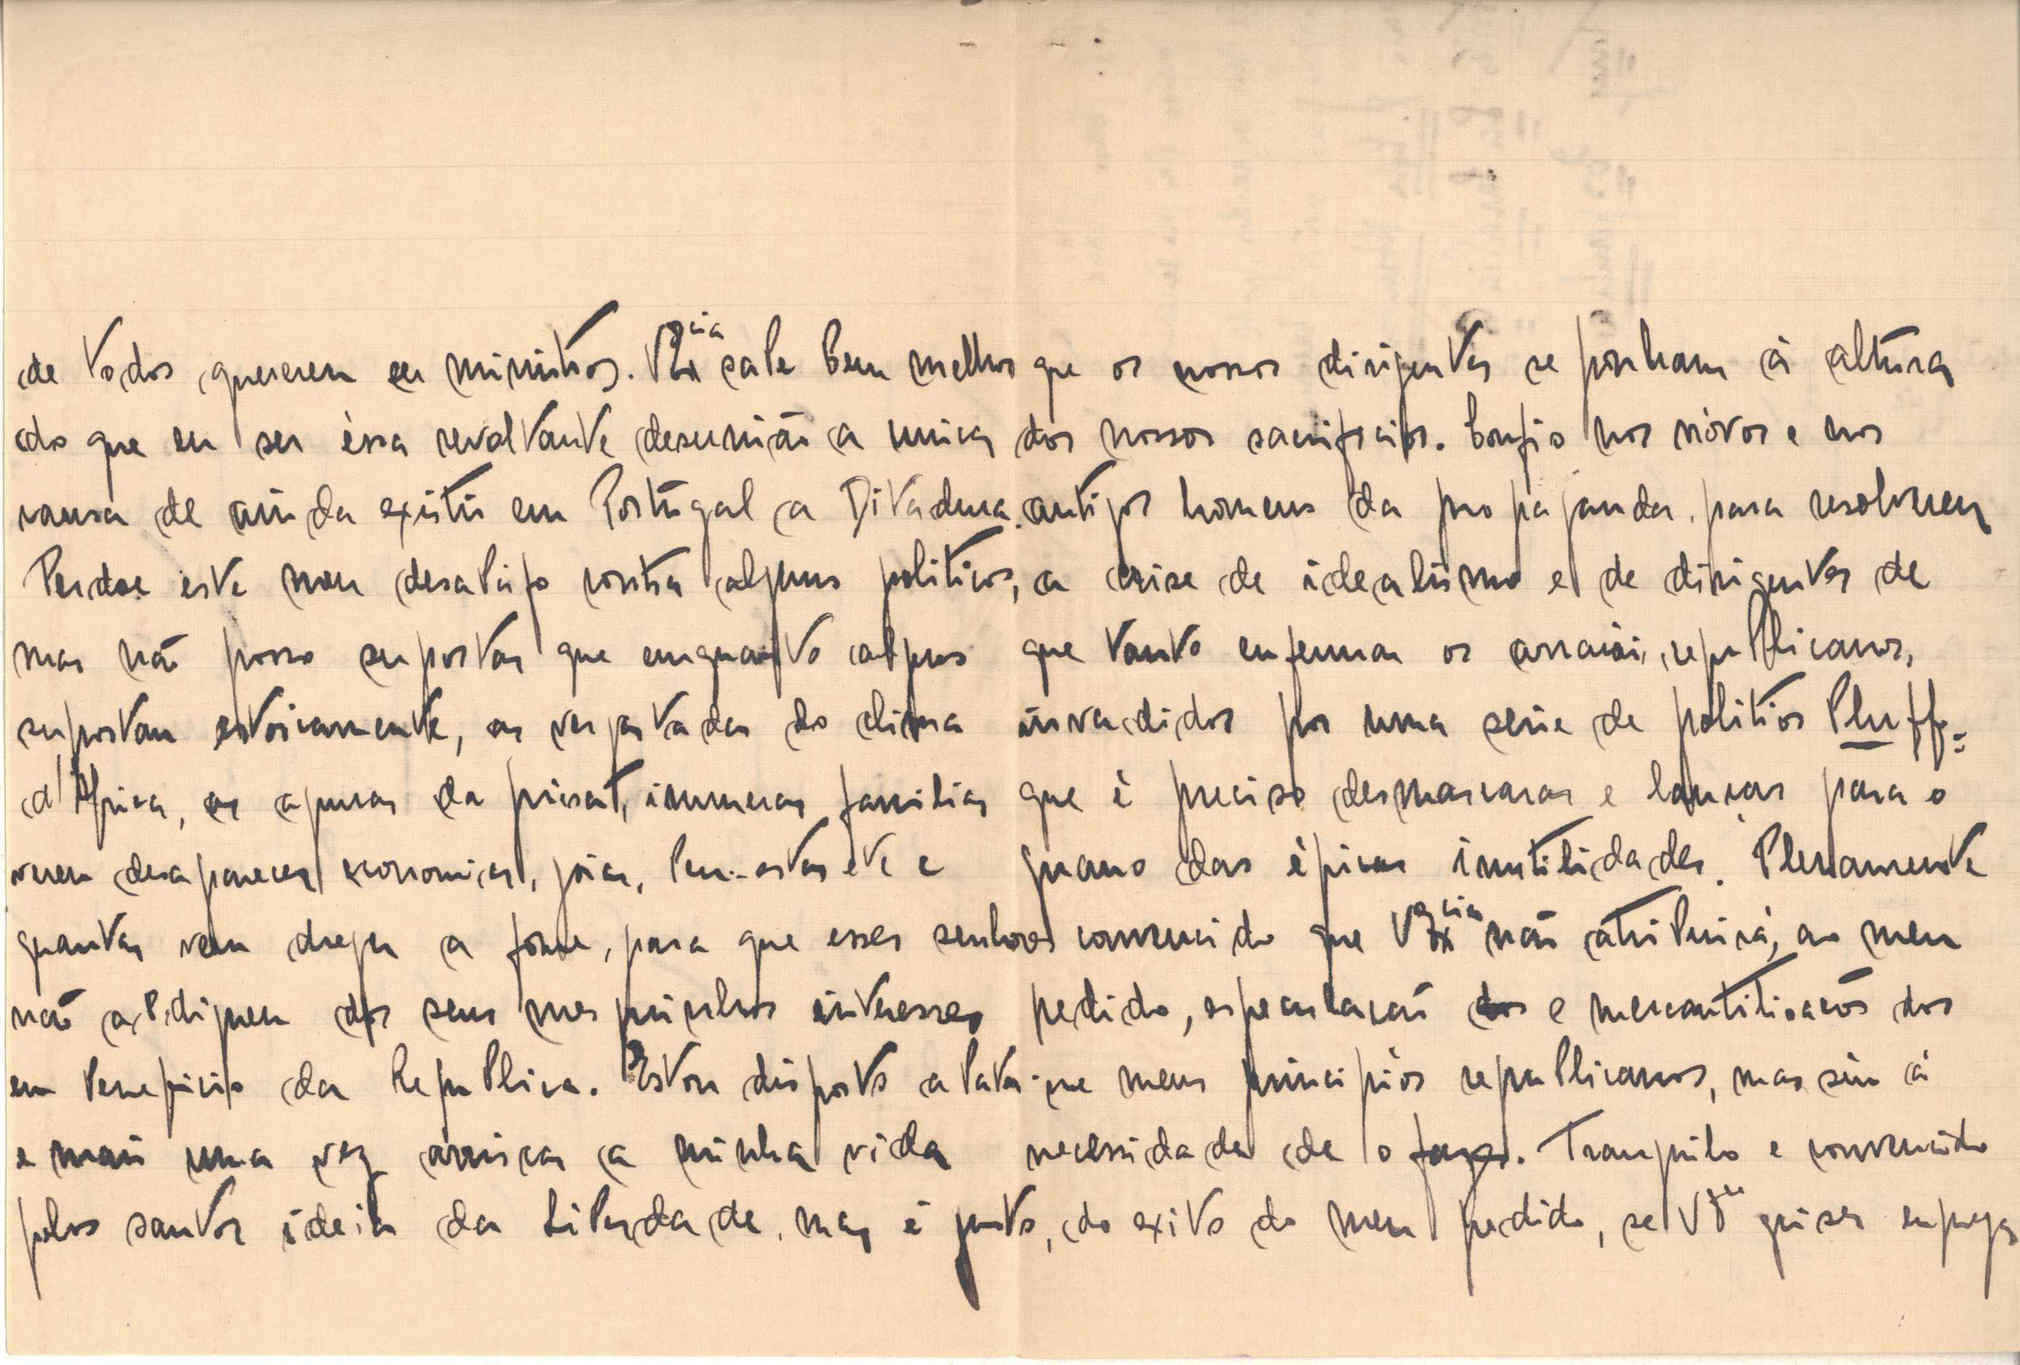 de todos quererem ser ministros. V. Ex.cia sabe bem melhor
do que eu ser éssa revoltante desunião a unica
causa de ainda existir em Portugal a Ditadura.
Perdoe este meu desabafo contra alguns politicos,
mas não posso suportar que emquanto alguns
suportam estoicamente, as vergastadas do clima
d'Africa, as agruras da prisão, inumeras familias
veem desaparecer economias, joias, bem-estar etc e
quantas veem chegar a fome, para que esses senhores
não abdiquem dos seus mesquinhos interesses
em beneficio da Republica. Estou disposto a bater-me
e mais uma vez arriscar a minha vida
pelos santos ideia da Liberdade, mas é justo,
que os nossos dirigentes se ponham á altura
dos nossos sacrificios. Confio nos nóvos e nos
antigos homens da propaganda, para resolverem
a crise de idealismo e de dirigentes de
que tanto enfermam os arraiais republicanos,
invadidos por uma serie de politicos bluffs
que é preciso desmascarar e lançar para o
guano das épicas inutilidades. Plenamente
convencido que V. Ex.cia não atribuirá, ao meu
pedido, especulação e mercantilisação dos
meus principios republicanos, mas sim á
necessidade de o fazer. Tranquilo e convencido
do exito do meu pedido, se V. quiser empregar